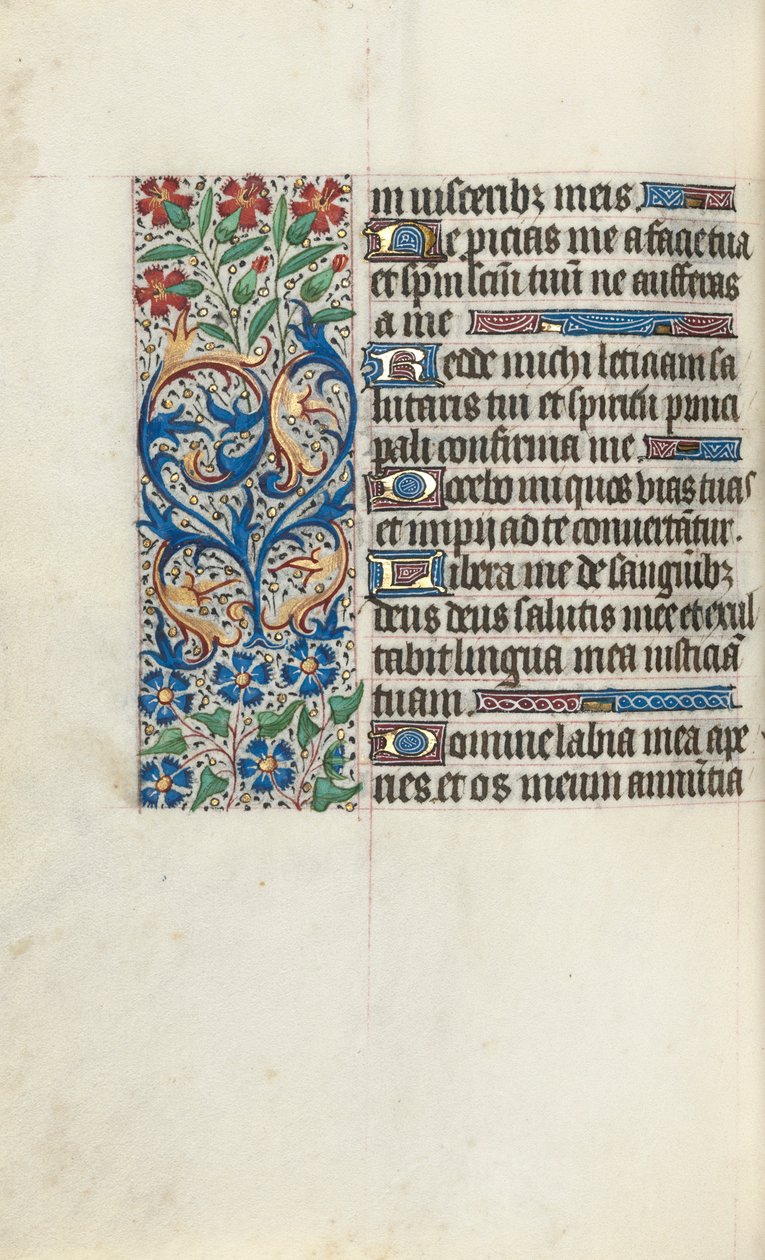 in uisceribꝫ meis.
Ne picias me a facie tua
et sp̄m sc̄m tuū ne aufferas
a me
Redde michi leticiam sa
lutaris tui et spiritu princi
pali confirma me.
Docebo iniquos vias tuas
et impij ad te conuertātur.
Libera me de sanguibꝫ
deus deus salutis mee et exul
tabit lingua mea iusticiā
tuam.
Domine labia mea ape
ries. et os meum annūtia